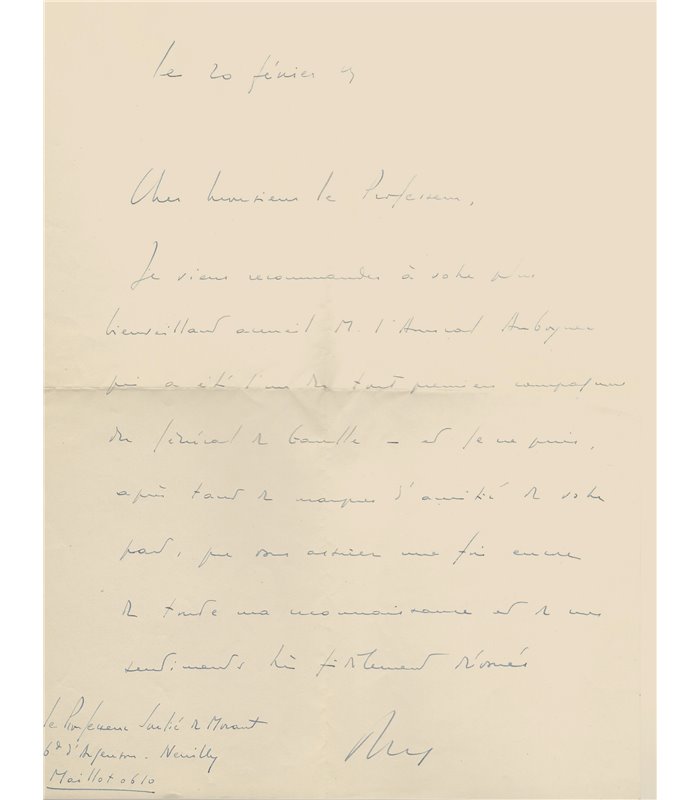 le 20 février
Cher Monsieur le Professeur,
Je viens recommander à votre plus
bienveillant accueil M. l'Amiral Auboyneau
qui a été l'un des tout premiers compagnons
du Général de Gaulle — et je ne puis,
après tant de marques d'amitié de votre
part, que vous assurer une fois encore
de toute ma reconnaissance et de mes
sentiments très fidèlement dévoués
le Professeur Soulié de Morant
6 Bd d'Argenson - Neuilly
Maillot 06 10